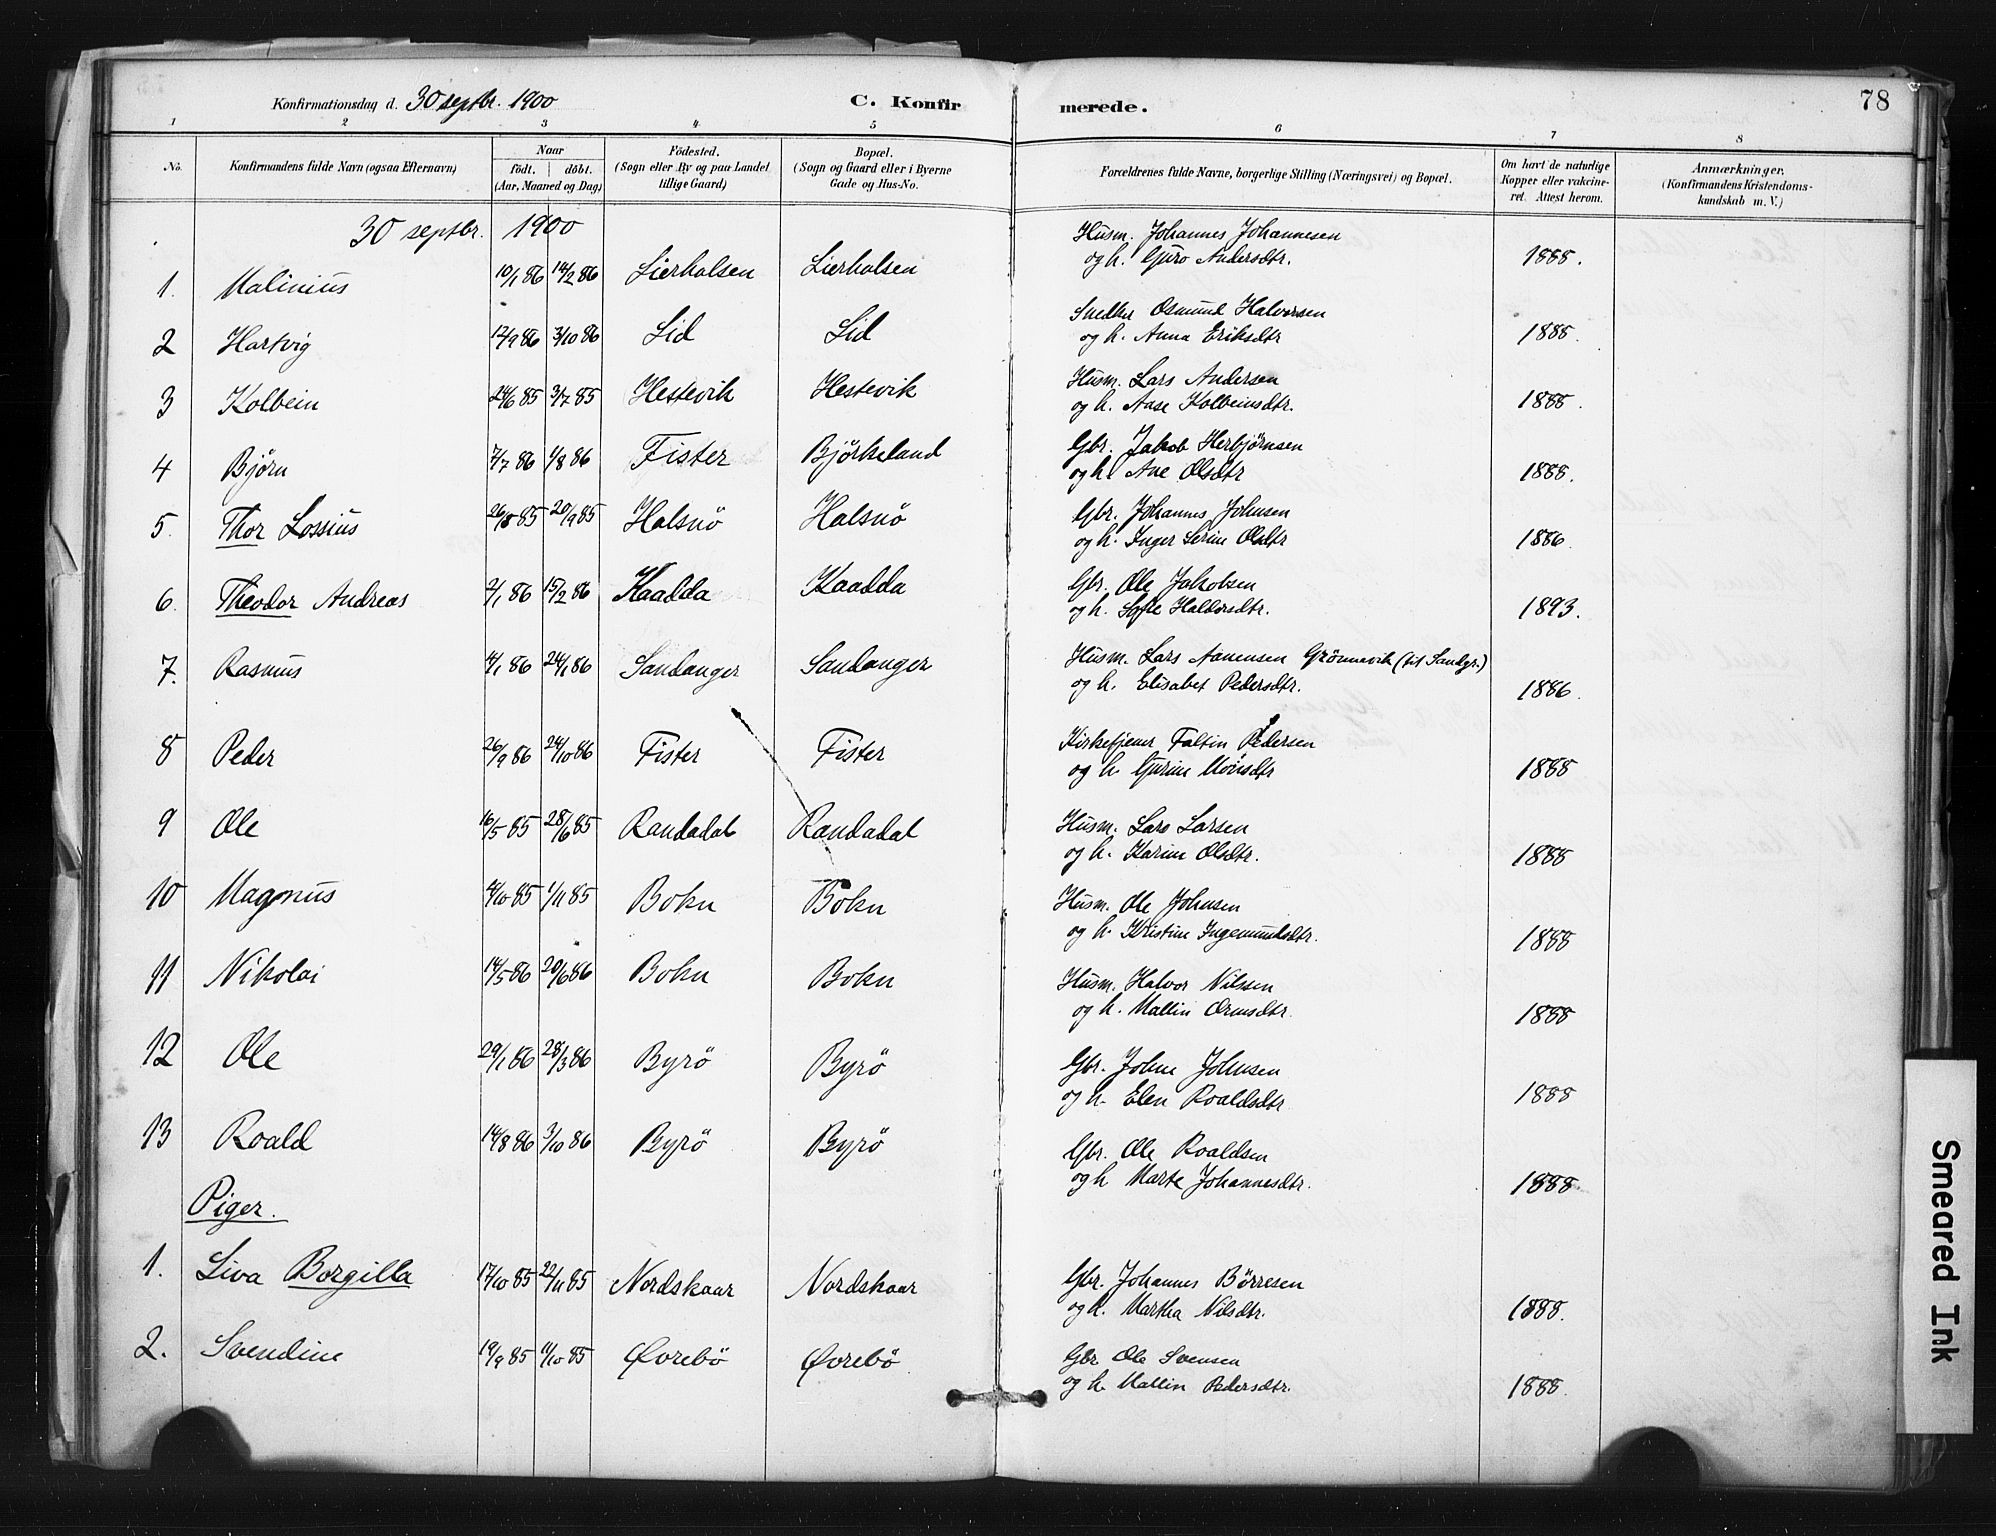 Konfirmationsdag d. 30 septbr. 1900 C. Konfirmerede. 78
1 2 3 4 5 6 7 8
No. Konfirmandens fulde Navn (ogsaa Efternavn) Naar födt. döbt. (Aar, Maaned og Dag) Födested. (Sogn eller By og paa Landet tillige Gaard) Bopæl. (Sogn og Gaard eller i Byerne Gade og Hus-No. Forældrenes fulde Navne, borgerlige Stilling (Næringsvei) og Bopæl. Om havt de naturlige Kopper eller vakcineret. Attest herom. Anmærkninger. (Konfirmandens Kristendomskundskab m. V.)
30 septbr. 1900
1. Malinius 10/1 86 14/2 86 Lierholsen Lierholsen Husm. Johannes Johannesen
og h. Guro Andersdtr. 1888.
2 Hartvig 12/9 86 3/10 86 Lid Lid Snedker Osmund Halvorsen
og h. Anna Eriksdtr 1888.
3 Kolbein 24/6 85 3/7 85 Hestevik Hestevik Husm. Lars Andersen
og h. Aase Kolbeinsdtr. 1888.
4 Björn 7/7 86 1/8 86 Fister Björkeland Gbr. Jakob Herbjörnsen
og h. Ane Olsdtr 1888.
5. Thor Lossius 26/8 85 20/9 85 Halsnö Halsnö Gbr. Johannes Johnsen
og h. Inger Serine Olsdtr 1886.
6. Theodor Andreas 2/1 86 15/2 86 Kaadda Kaadda Gbr. Ole Jakobsen
og h. Sofie Haldorsdtr. 1893.
7. Rasmus 4/1 86 24/1 86 Sandanger Sandanger Husm. Lars Aanensen Grönnevik (til Sandgr.)
og h. Elisabet Pedersdtr. 1886.
8 Peder 26/9 86 24/10 86 Fister Fister Kirketjener Faltin Pedersen
og h. Gurine Mönsdtr 1888
9 Ole 16/5 85 28/6 85 Randadal Randadal Husm. Lars Larsen
og h. Karine Olsdtr. 1888
10 Magnus 4/10 85 1/11 85 Bokn Bokn Husm. Ole Johnsen
og h. Kristine Ingemundsdtr. 1888
11 Nikolai 14/5 86 20/6 86 Bokn Bokn Husm. Halvor Nilssen
og h. Mallin Ormsdtr. 1888
12 Ole 29/1 86 28/3 86 Byrö Byrö Gbr. John Johnsen
og h. Elen Roaldsdtr 1888
13 Roald 14/8 86 3/10 86 Byrö Byrö Gbr. Ole Roaldsen
og h Marta Johannesdtr. 1888
Piger.
1. Liva Borgilla 17/10 85 22/11 85 Nordskaar Nordskaar Gbr. Johannes Börresen
og h. Martha Nilsdtr. 1888.
2. Svendine 19/9 85 11/10 85 Øvrebö Øvrebö Gbr Ole Svensen
og h. Mallin Pedersdtr. 1888.
Smeared Ink